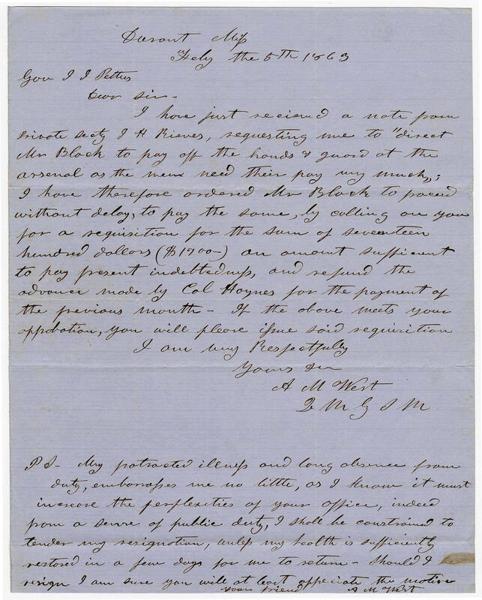 Durant Miss
Feby the 5th 1863
Gov J J Pettus
Dear Sir-
I have just recieved a note from
Private Secty J H Rieves, requesting me to "direct
Mr Black to pay off the hands & guard at the
arsenal as the men need their pay very much,;
I have therefore ordered Mr Black to proceed
without delay, to pay the same, by calling on you
for a requisition for the sum of seventeen
hundred dollars ($1700-) an amount sufficient
to pay present indebtedness, and refund the
advance made by Col Haynes for the payment of
the previous month - If the above meets your
approbation, you will please issue said requisition
I am very Respectfully
Yours &c
A M West
Q M G S M
P S - My protracted illness and long absence from
duty, embarrasses me no little, as I know it must
increase the perplexities of your office, indeed
from a sense of public duty, I shall be constrained to
tender my resignation, unless my health is sufficiently
restored in a few days for me to return - Should I
resign I am sure you will at least appreciate the motive
Your friend A M West